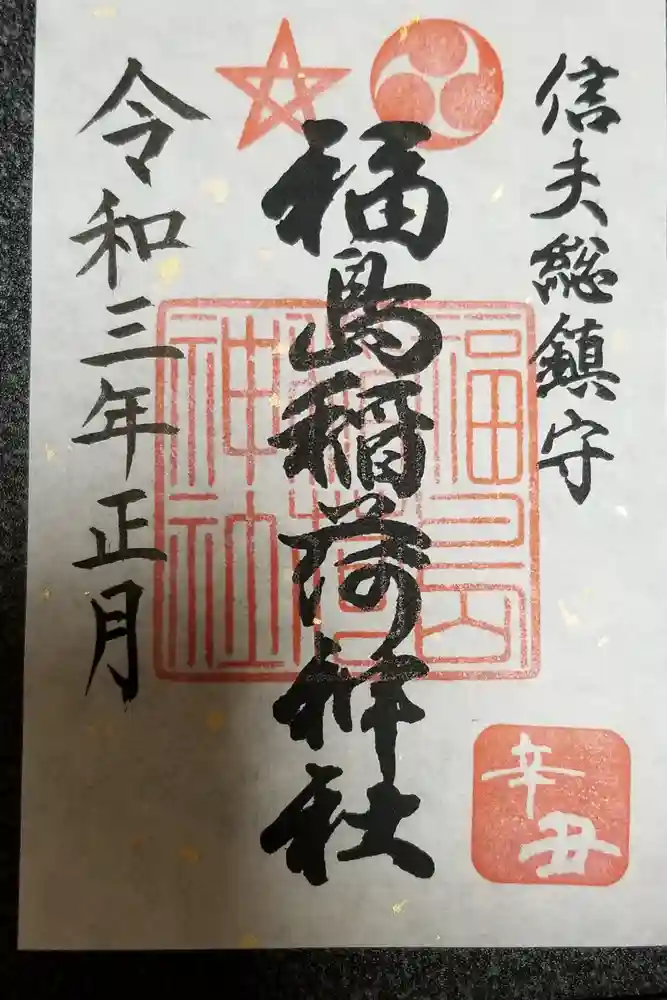 信夫総鎮守
福島稲荷神社
令和三年正月
福島
稲荷
神社
辛丑